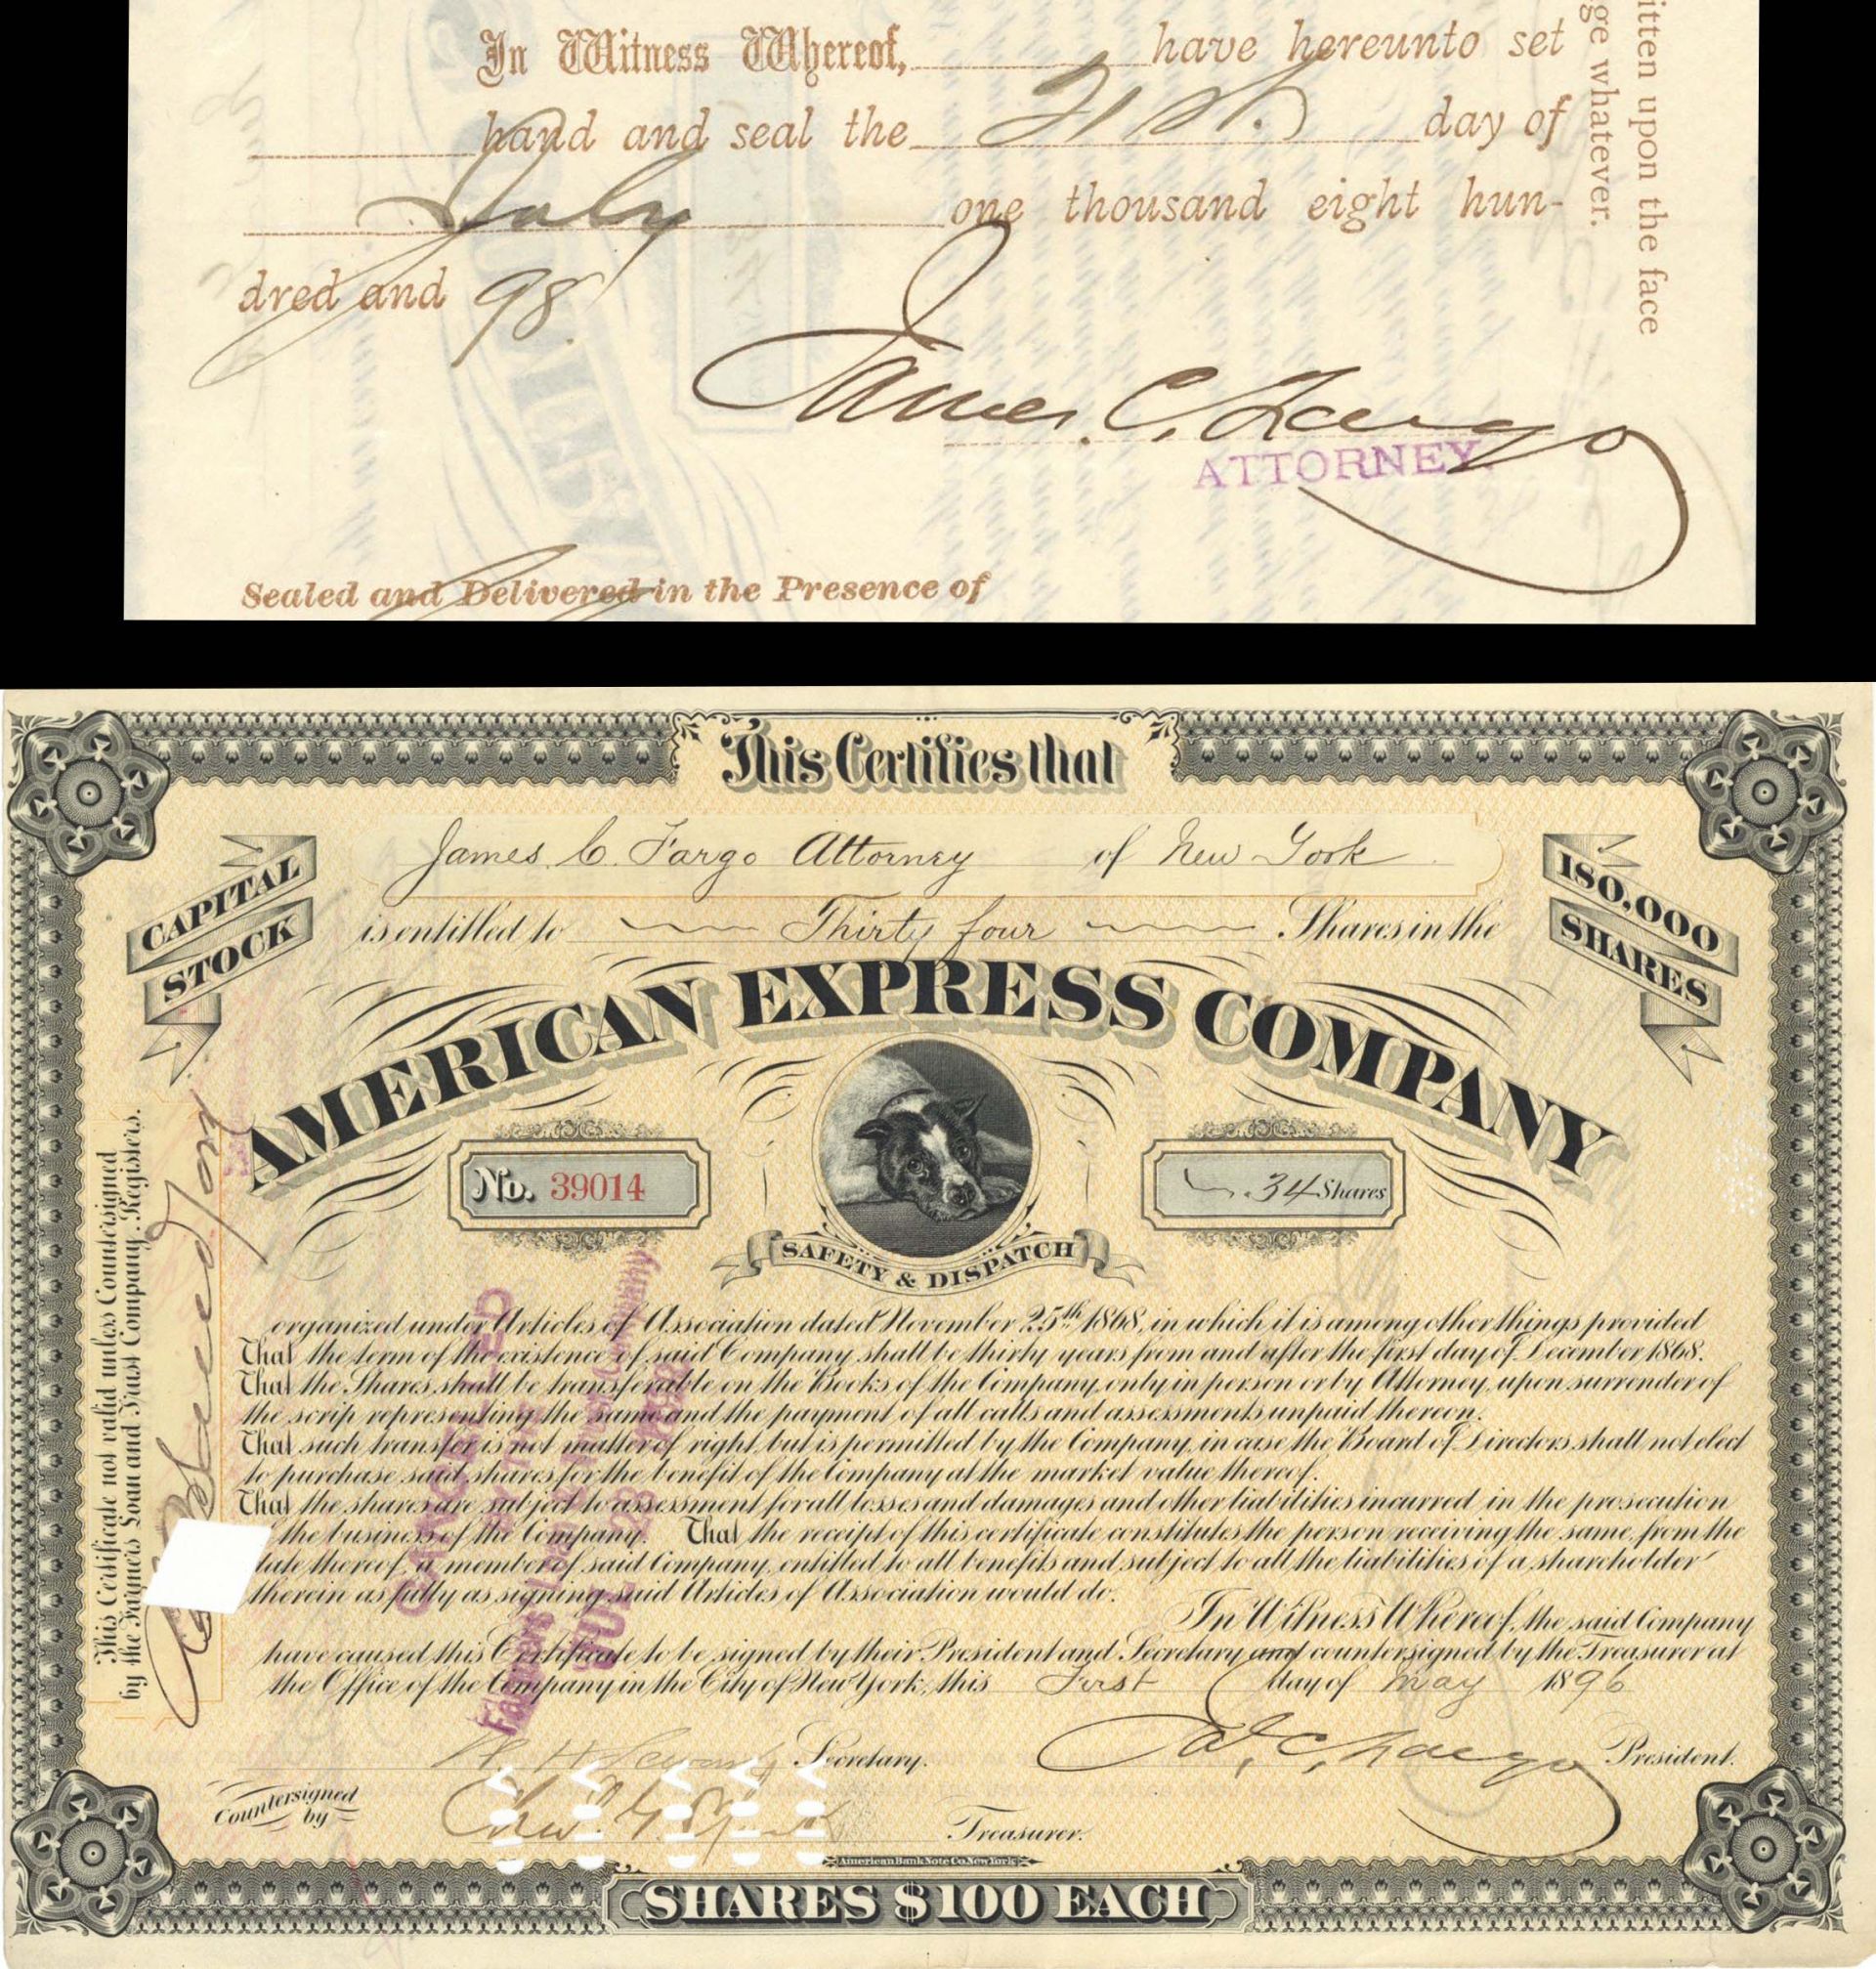 In Witness Whereof, have hereunto set
hand and seal the 21st day of
July one thousand eight hun-
dred and 98
James. C. Fargo
ATTORNEY.
Sealed and Delivered in the Presence of
itten upon the face
ge whatever.
This Certifies that
CAPITAL
STOCK
James. C. Fargo Attorney of New York
180,000
SHARES
is entitled to Thirty four Shares in the
AMERICAN EXPRESS COMPANY
No. 39014
34 Shares
SAFETY & DISPATCH
organized under Articles of Association dated November 25th 1868, in which it is among other things provided
That the term of the existence of said Company shall be thirty years from and after the first day of December 1868.
That the Shares shall be transferable on the Books of the Company only in person or by Attorney, upon surrender of
the scrip representing the same and the payment of all calls and assessments unpaid thereon.
That such transfer is not matter of right, but is permitted by the Company, in case the Board of Directors shall not elect
to purchase said shares for the benefit of the Company at the market value thereof.
That the shares are subject to assessment for all losses and damages and other liabilities incurred in the prosecution
the business of the Company. That the receipt of this certificate constitutes the person receiving the same, from the
date thereof, a member of said Company, entitled to all benefits and subject to all the liabilities of a shareholder
therein as fully as signing said Articles of Association would do.
In Witness Whereof, the said Company
have caused this Certificate to be signed by their President and Secretary and countersigned by the Treasurer at
the Office of the Company in the City of New York, this First day of May 1896
Secretary.
J. C. Fargo President.
Countersigned
by
Treasurer.
American Bank Note Co. New York
SHARES $100 EACH
This Certificate not valid unless Countersigned
by the Farmers Loan and Trust Company, Registers.
CANCELLED